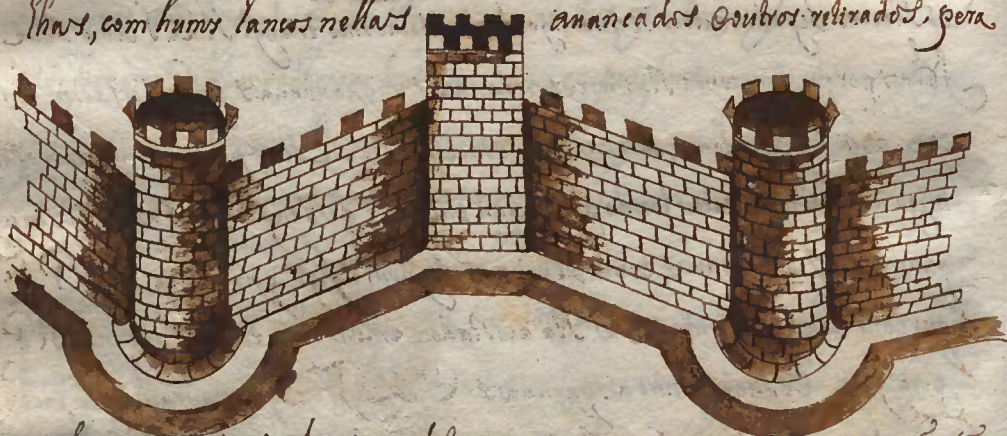 lhas, com huns lanços nellas auançados. Coutros retirados, pera